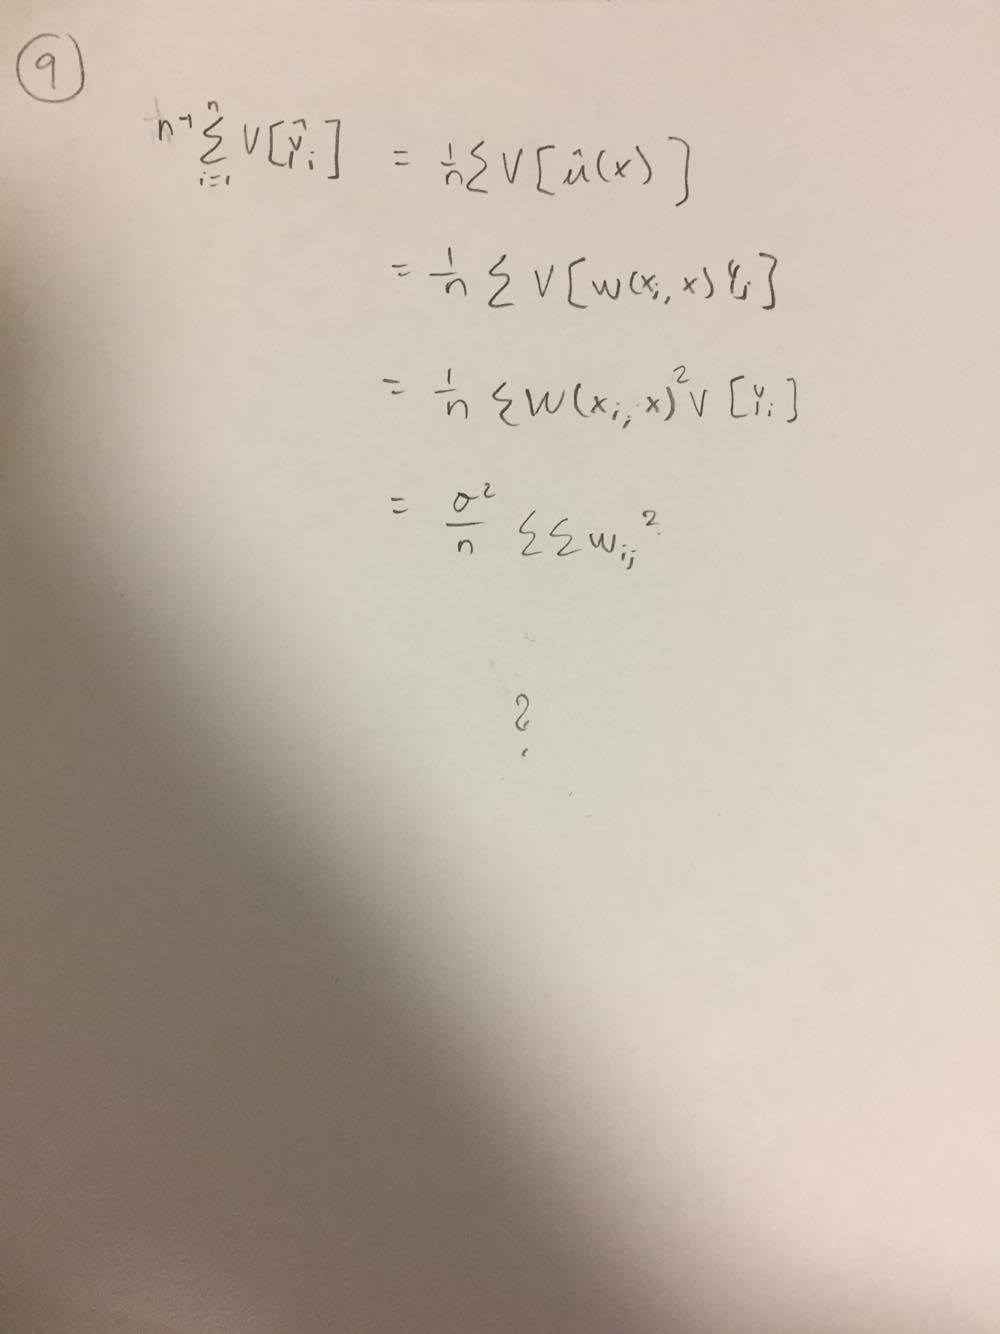 9
n⁻¹ Σᵢ₌₁ⁿ V[Ŷᵢ] = 1/n Σ V[û(x)]
= 1/n Σ V[w(xᵢ, x) Yᵢ]
= 1/n Σ w(xᵢ, x)² V[Yᵢ]
= σ²/n Σ Σ wᵢⱼ²
?